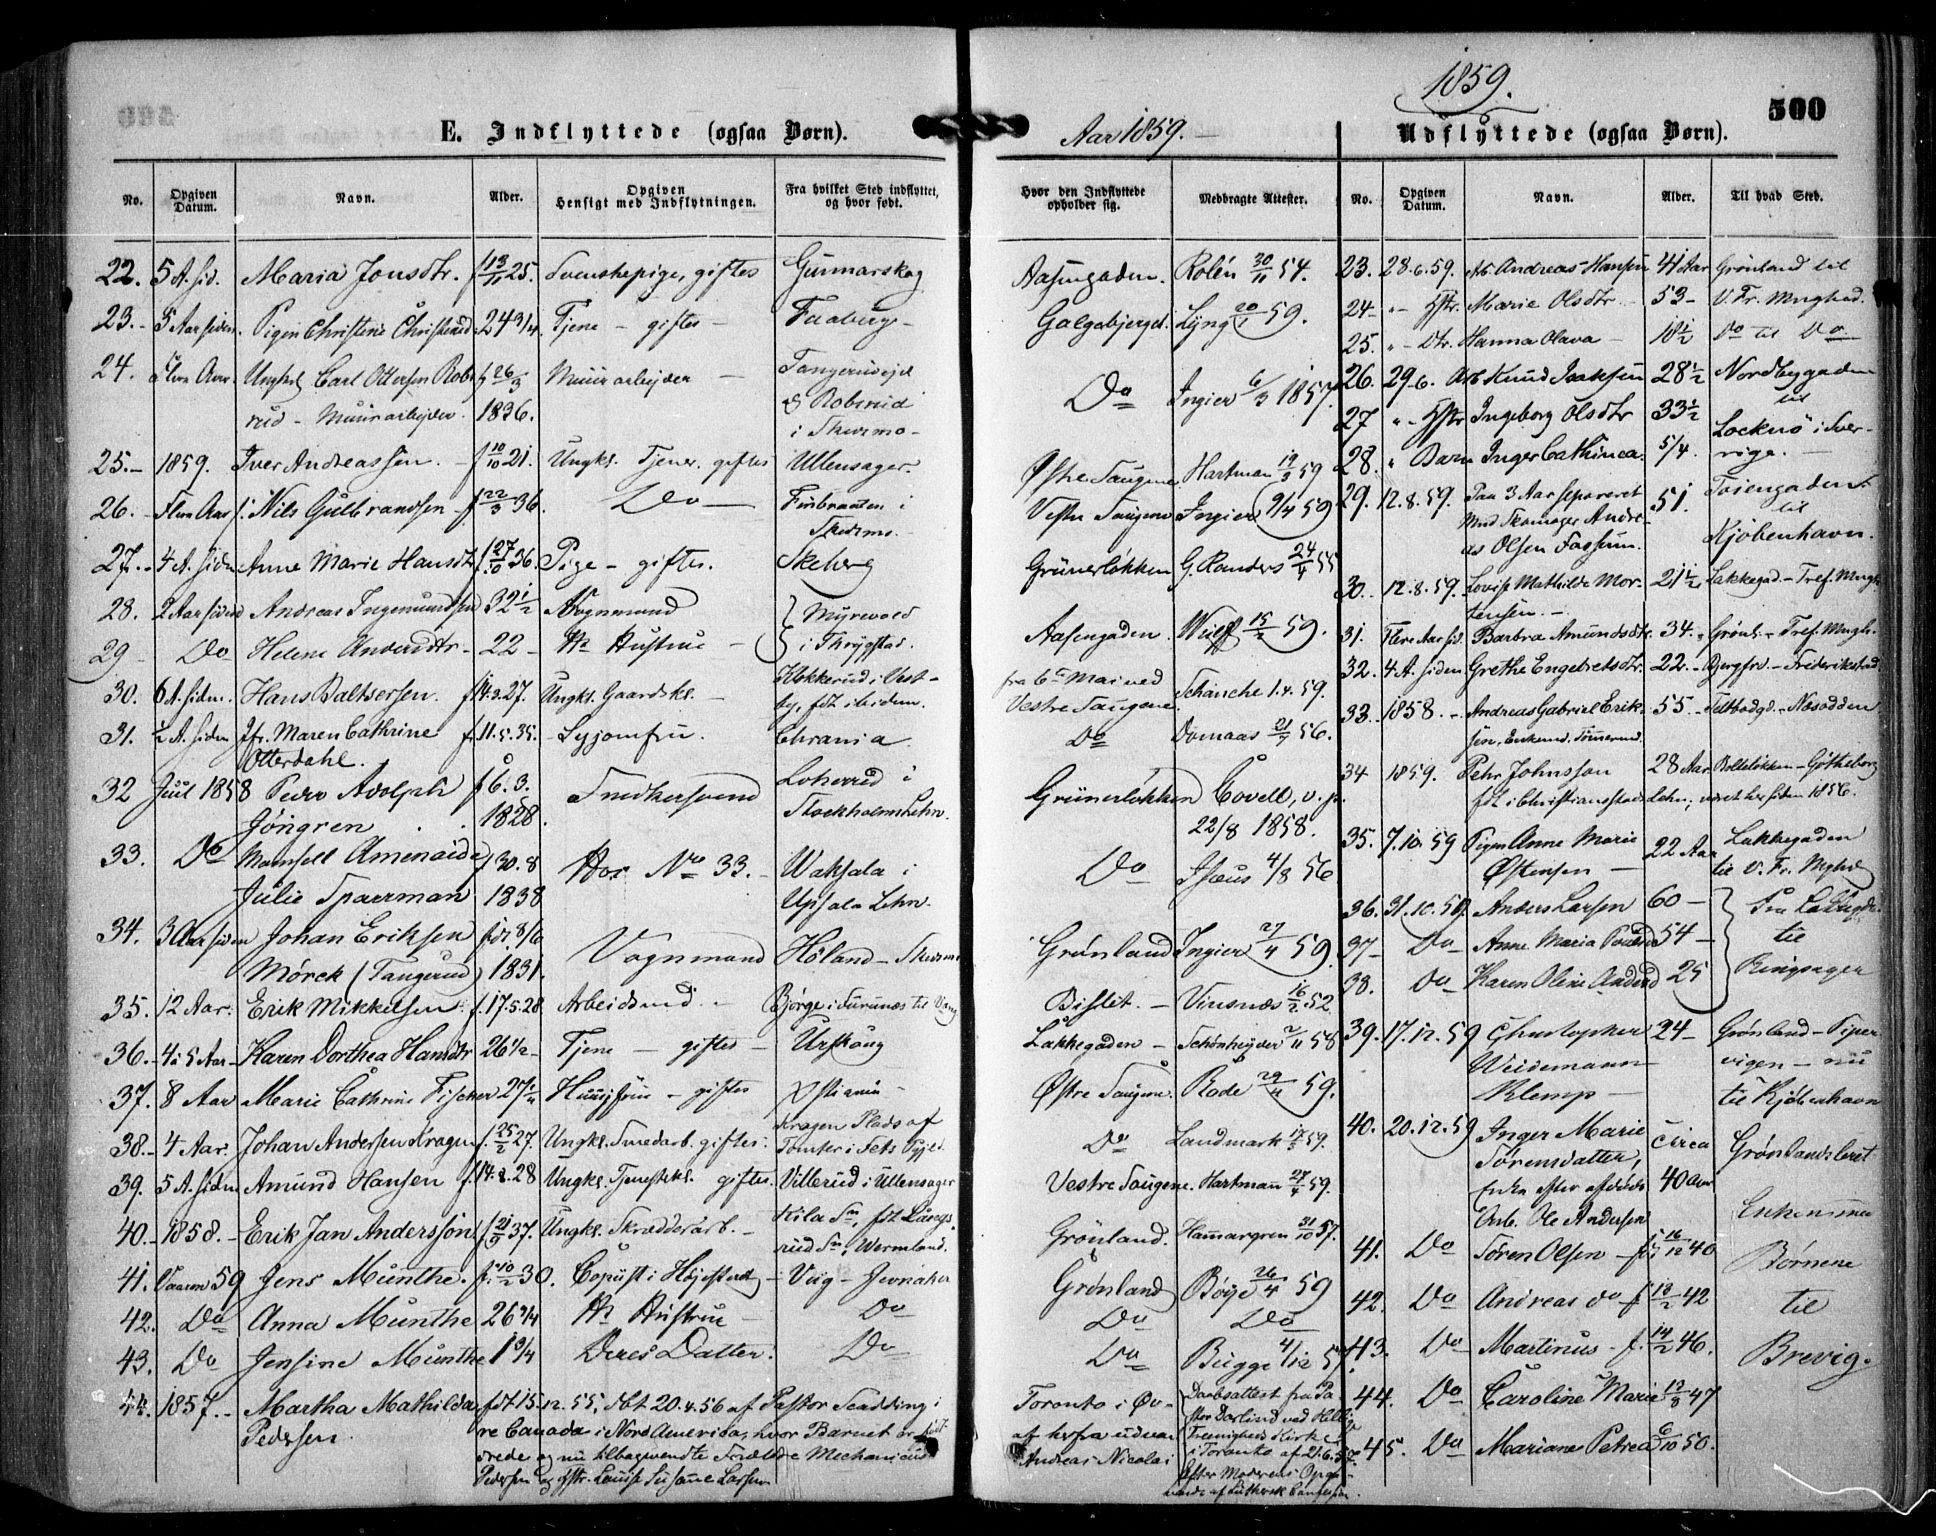 1859.
500
E. Indflyttede (ogsaa Børn).
Aar 1859.
Udflyttede (ogsaa Børn).
No. Opgiven Datum. Navn. Alder. Opgiven Hensigt med Indflytningen. Fra hvilket Sted indflyttet, og hvor født.
22. 5 A. sid. Maria Jonsdtr. f 13/11 25. Svenskepige, giftes Gunnarskog
23. 5 Aar siden Pigen Christine Christ 24 3/4 Tjene - giftes Faaberg
24. Ungkl. Carl Ottersen Rob- f 26/3 Muurarbejder Tangerudejd
rud - Muurarbejder. 1836. & Robsrud
i Skedsmo
25. 1859. Iver Andreassen. f 10/10 21. Ungkl. Tjener. giftes Ullensager.
26. Flere Aar s. Nils Gulbrandsen f 22/3 36. Do i
Skedsmo.
27. 4 A. siden Anne Marie Hansdtr f 27/10 36. Pige - giftes. Skeberg
28. 2 Aar siden Andreas Ingemundsen 32 1/2 Vognmand Myrevold
29 Do Helene Andersdtr 22 Hs Hustrue i Thrygstad.
30. 6 A. siden. Hans Baltsersen. f 14.3.27. Ungkl. Gaardskl. Klokkerud i Vest-
by, fdt ibidem.
31. 2 A. siden Jfr. Maren Cathrine f 11.5.35. Syjomfru. Chrania.
Otterdahl.
32 Juul 1858 Pedro Adolph f 6.3. Snedkersvend i
Jöngren 1828. Stockholms Lehn.
33. Do Mamsell Amenaide f 30.8 Hos No 33. Waksala i
Julie Sparrman 1838 Upsala Lehn.
34. 3 Aar siden Johan Eriksen fdt 8/6 Vognmand Høland - Skedsmo
Mørck (Tangerud) 1831.
35. 12 Aar. Erik Mikkelsen. f. 17.5.28 Arbeidsmd. Bjørge i Furunæs til Vang
36. 4 à 5 Aar Karen Dorthea Hansdtr 26 1/2 Tjene - giftes Urskoug
37. 8 Aar Marie Cathrine Fischer 27 1/4 Huusjfru - giftes Xstiania
38. 4 Aar. Johan Andersen Kragen f. 25/2 27. Ungkl. Smedarb. giftes. Kragen Plads af
Tomter i Fets
39. 5 A. siden Amund Hansen f. 14.8.28 Ungkl. Tjenestekl. giftes. Villerud i Ullensager
40. 1858. Erik Jan Andersson f 21/9 37. Ungkl. Skrædderarb. Kila Sn, fdt
rud Sn, Wermland.
41. Vaaren 59 Jens Munthe. f. 10/2 30. Copiist i Højesteret Viig - Jevnaker
42. Do Anna Munthe 26 3/4 Hs Hustrue Do
43. Do Jensine Munthe 1 3/4 Deres Datter. Do
44. 1857. Martha Mathilda fdt 15.12.55, dbt 20.4.56 af Pastor i
Pedersen re Canada i Nord America, hvor Barnet
rede og nu tilbagevendte Forældre Mechanicus
Pedersen og Hstr. Louise Susanne Larsen
Hvor den Indflyttede opholder sig. Medbragte Attester.
Aasengaden. Rolén 30/11 54.
Galgebjerget. Lyng 20/1 59.
Do Ingier 6/3 1857.
Østre Hartman 19/3 59
Vestre Ingier 9/4 59
Grünerløkken G. Randers 24/4 55
Aasengaden. Wulff 15/2 59.
fra 6te Mai ved
Vestre Schanche 1.4.59.
Do Domaas 21/7 56.
Grünerløkken Covell, v. p.
22/8 1858.
Do Isæus 4/8 56
Grønland Ingier 27/4 59.
Bislet. Vinsnæs 16/2 52.
Lakkegaden Schönheyder 2/11 58
Østre Rode 29/4 59.
Do Landmark 59.
Vestre Hartman 27/4 59.
Grønland. Hammargren 31/10 57.
Grønland Bøye 26/4 59
Do Do
Do Bugge 4/12 5
Toronto i Øv- Daabsattest fra Pa-
af herfra udvan stor ved Helli
Andreas Nicolai Treenigheds Kirke
i Toronto af 21.6.
Efter Moderens Opgi-
vende af Luthersk Confession.
No. Opgiven Datum. Navn. Alder. Til hvad Sted.
23. 28.6.59. Arb. Andreas Hansen 41 Aar Grønland til
24 " Hstr. Marie Olsdtr. 53 V. Fr. Mnghed.
25. " Dtr. Hanna Olava 18 1/2 Do til Do
26. 29.6. Arb Knud Isaksen 28 1/2 Nordbygaden
27 " Hstr Ingeborg Olsdtr 33 1/2 til
Locknö i Sver-
28. " Barn Inger Cathinca. 5/4. rige.
29. 12.8.59. Paa 3 Aar separeret 51. Tøiengaden
Mnd Skomager Andre- til
as Olsen Fossum. Kjøbenhavn.
30. 12.8.59. Lovise Mathilde Mor- 21 1/2 Lakkegad - Tref. Mngh.
tensen.
31. Flere Aar sid. Barbra Amundsdtr. 34. Grønl. - Tref. Mngh.
32. 4 A. siden Grethe Engebretsdtr. 22. Bergfrv. - Frederikstad
33. 1858. Andreas Gabriel Erik- 55. Næsodden
sen, Enkemd, Tømmermd.
34 1859. Pehr Johnsson 28 Aar Bolteløkken - Götheborg
fdt i Christiansstads Lehn; været her siden 1856.
35. 7.10.59 Pigen Anne Marie 22 Aar Lakkegaden
Østensen til V. Fr. Mghd
36. 31.10.59. Anders Larsen 60 Fra
37 Do Anne Maria 54 til
38. Do Karen Oline Andersd 25 Ringsager
39. 17.12.59 Christopher 24 Grønland - Piper
Weidemann vigen - nu
Klemp til Kjøbenhavn
40. 20.12.59 Inger Marie circa Grønlandsleret
Sørensdatter, 40 Aar
Enke efter afdøde
Arb. Ole Andersen Enken med
41. Do Søren Olsen f 16/12 40 Børnene
42. Do Andreas do f 13/2 42 til
43. Do Martinus f. 14/2 46. Brevig.
44. Do Caroline Marie 13/8 47
45. Do Mariane Petrea 6/10 50.